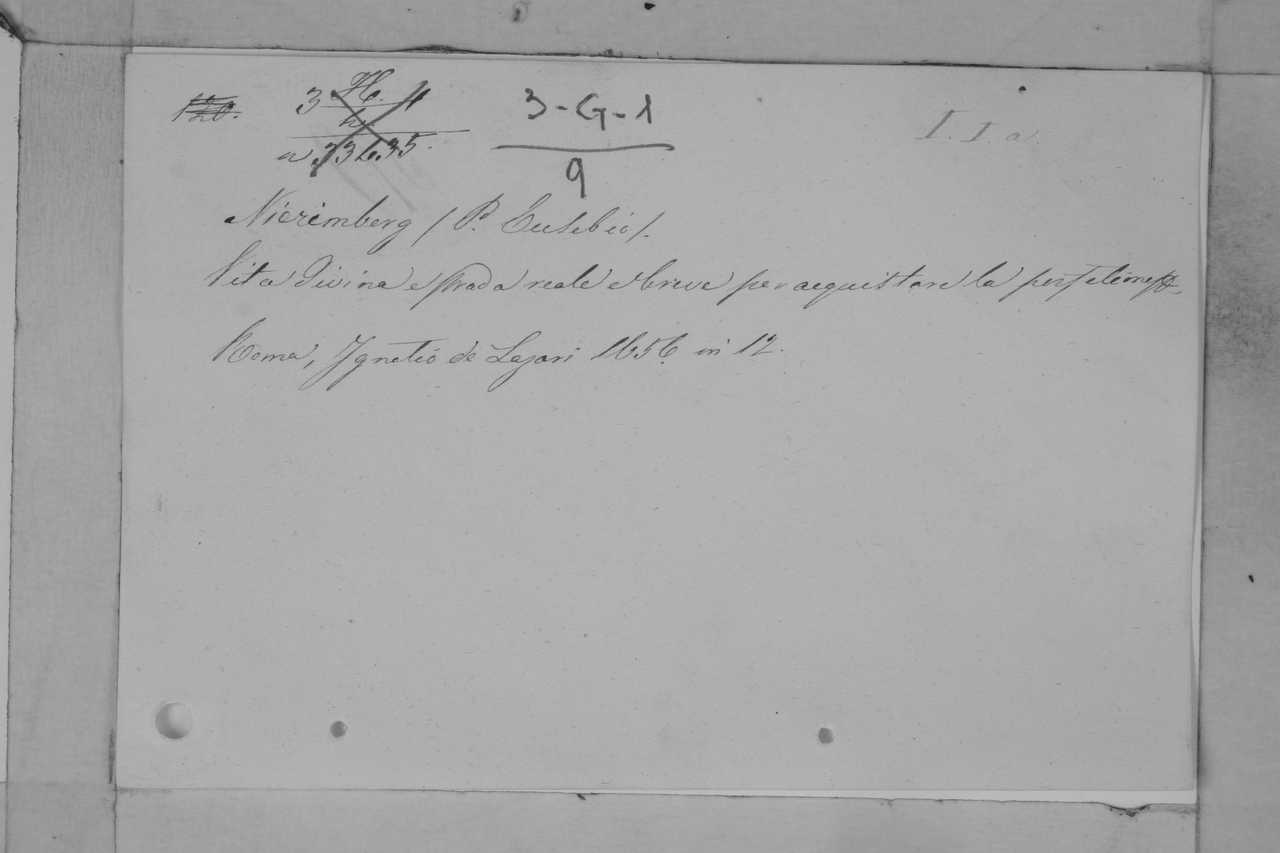 120.
3-G-1
9
I. I a.
Nierimberg (P. Eusebio).
Vita Divina e strada reale e breve per acquistare la
Roma, Ignatio de Lazari 1656 in 12.